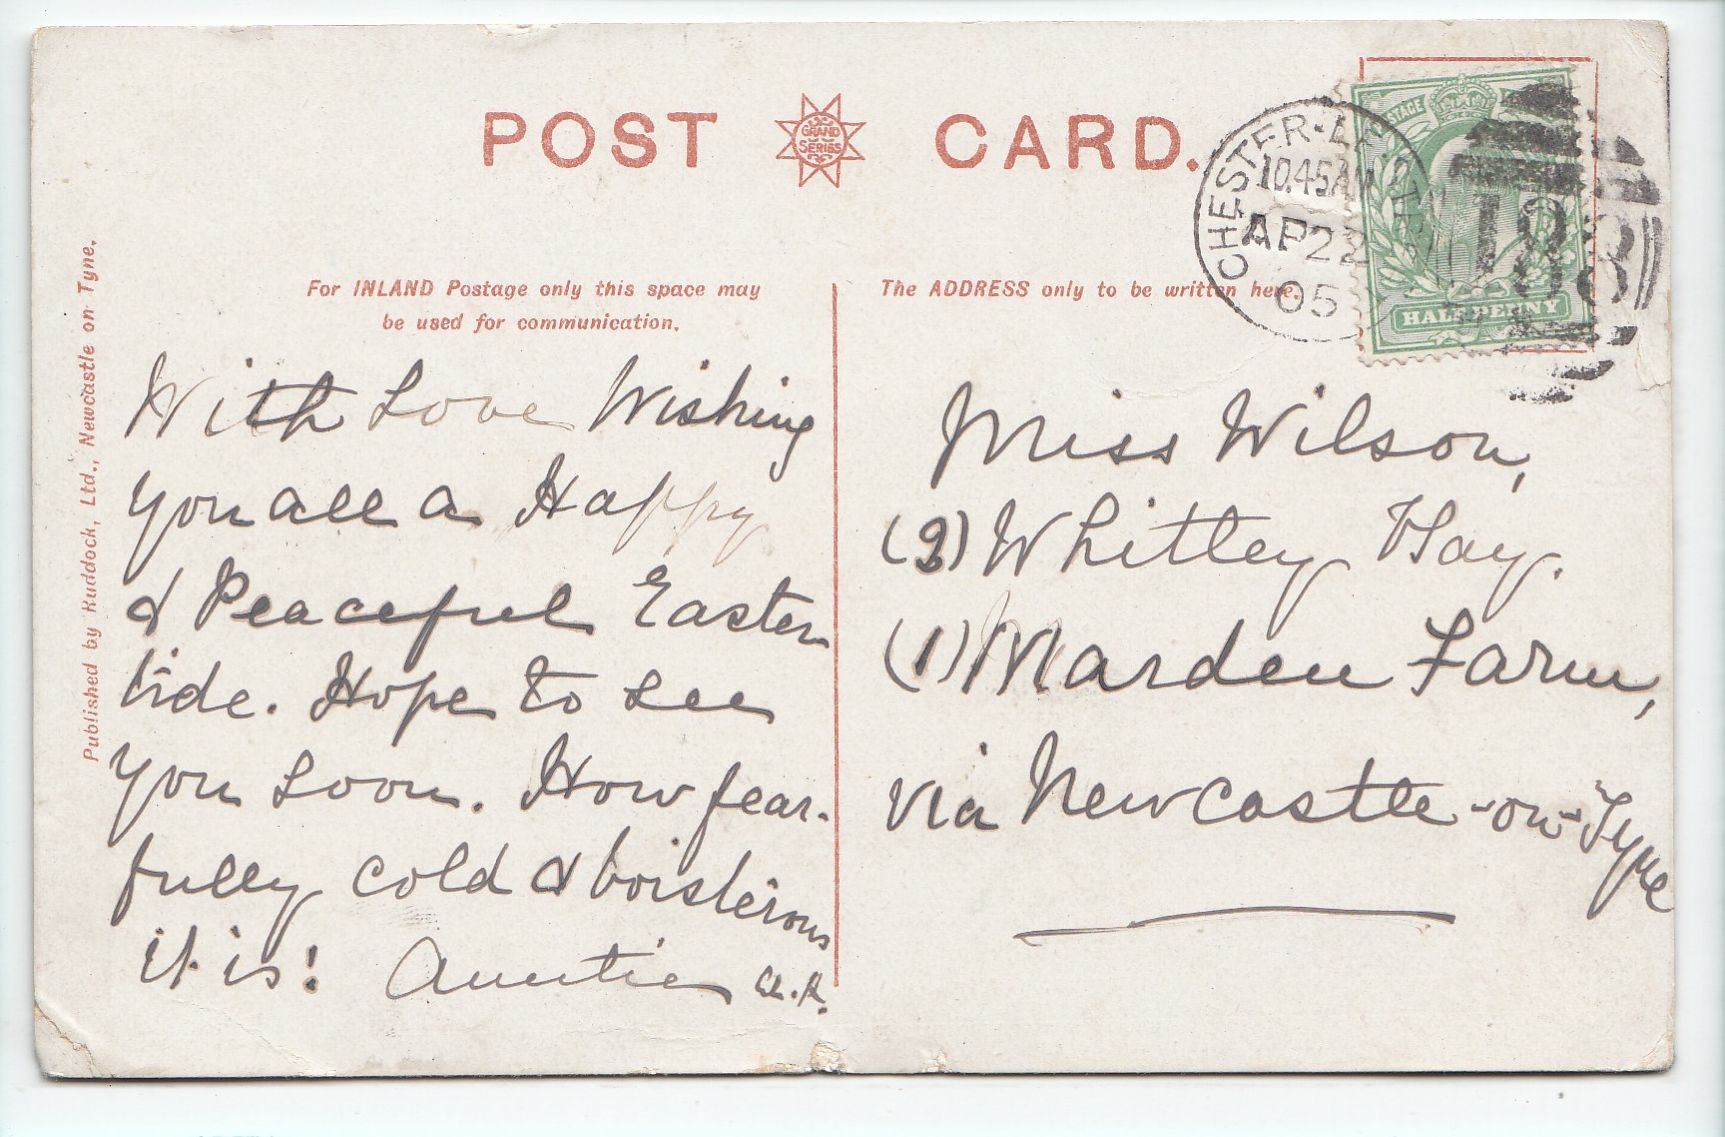 POST CARD.
GRAND
SERIES
CHESTER-LE-STREET
10.45AM
AP 22
05
188
POSTAGE
HALFPENNY
For INLAND Postage only this space may
be used for communication.
The ADDRESS only to be written here.
Published by Ruddock, Ltd., Newcastle on Tyne.
With Love Wishing
you all a Happy
& Peaceful Easter
tide. Hope to see
you soon. How fear-
fully cold & boisterous
it is! Auntie
Miss Wilson,
(2) Whitley Bay.
(1) Marden Farm,
via Newcastle-on-Tyne